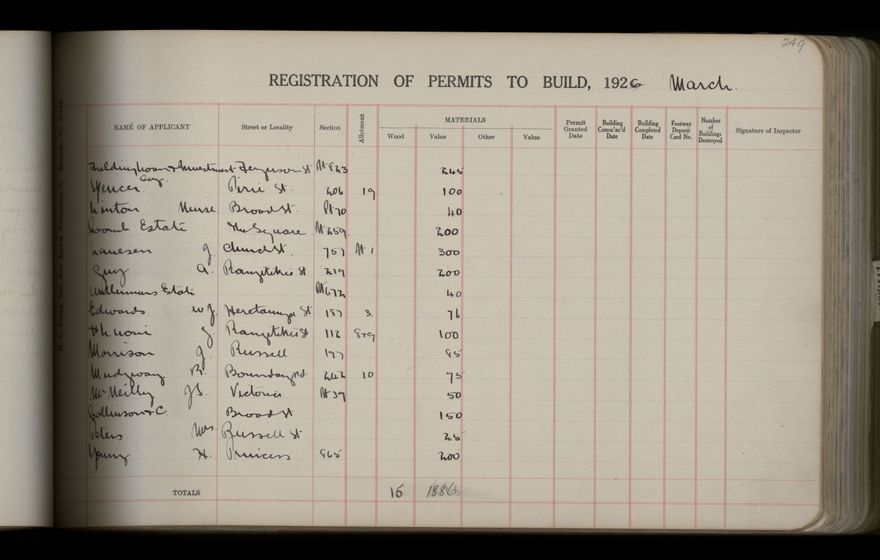 249
REGISTRATION OF PERMITS TO BUILD, 1926 March.
NAME OF APPLICANT Street or Locality Section Allotment MATERIALS Wood Value Other Value Permit Granted Date Building Comm'nc'd Date Building Completed Date Footway Deposit Card No. Number of Buildings Destroyed Signature of Inspector
Investment Ferguson St Pt 823 245
Coy.
Spencer Pirie St. 206 19 100
Linton Nurse Broad St. Pt 70 40
Estate The Square Pt 259 200
J. Church St. 757 Pt 1 300
Guy A. Rangitikei St 219 200
Estate Pt 672 40
Edwards W J. Heretaunga St 187 3 76
J Rangitikei St 112 8+9 100
Morrison J. Russell 177 85
Mudgway R. Boundary Rd. 242 10 75
McNeilly J S. Victoria Pt 39 50
Collinson & C. Broad St 150
Peters Mrs. Russell St 25
Young H. Princess 865 200
TOTALS 15 1886